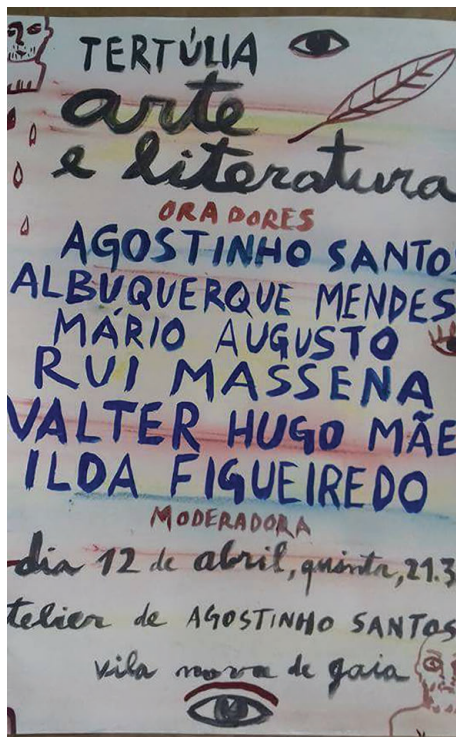 TERTÚLIA
arte
e literatura
ORADORES
AGOSTINHO SANTOS
ALBUQUERQUE MENDES
MÁRIO AUGUSTO
RUI MASSENA
VALTER HUGO MÃE
ILDA FIGUEIREDO
MODERADORA
dia 12 de abril, quinta, 21.3
telier de AGOSTINHO SANTOS
vila nova de gaia